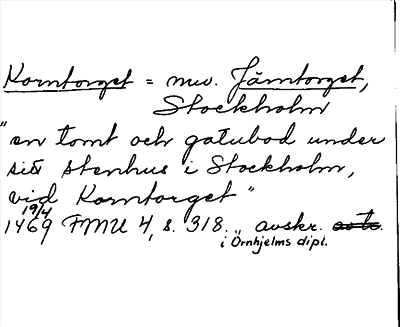 Korntorget = nuv. Järntorget,
Stockholm
"en tomt och gatubod under
sitt stenhus i Stockholm,
vid Korntorget"
19/4
1469 FMU 4, s. 318. avskr.
i Örnhjelms dipl.